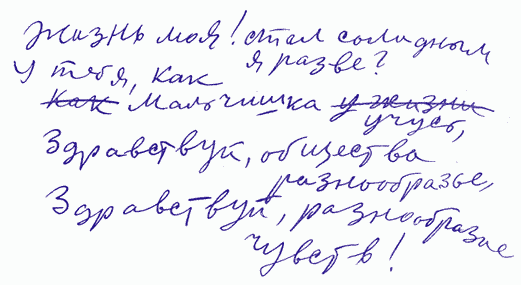 Жизнь моя! стал солидным
я разве?
У тебя, как
как мальчишка у жизни
учусь,
Здравствуй, общества
разнообразье,
Здравствуй, разнообразие
чувств!